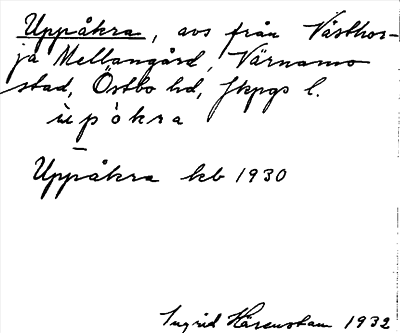 Uppåkra, avs från Västhor-
ja Mellangård, Värnamo
stad, Östbo hd, Jkpgs l.
ùpòkra
Uppåkra kb 1930
Ingrid Härenstam 1932